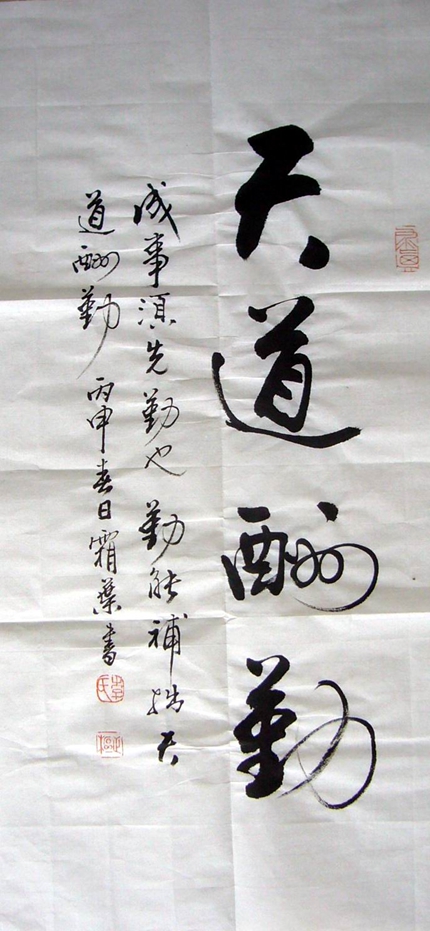 天道酬勤
成事须先勤也勤能補拙天
道酬勤 丙申春日霜葉書